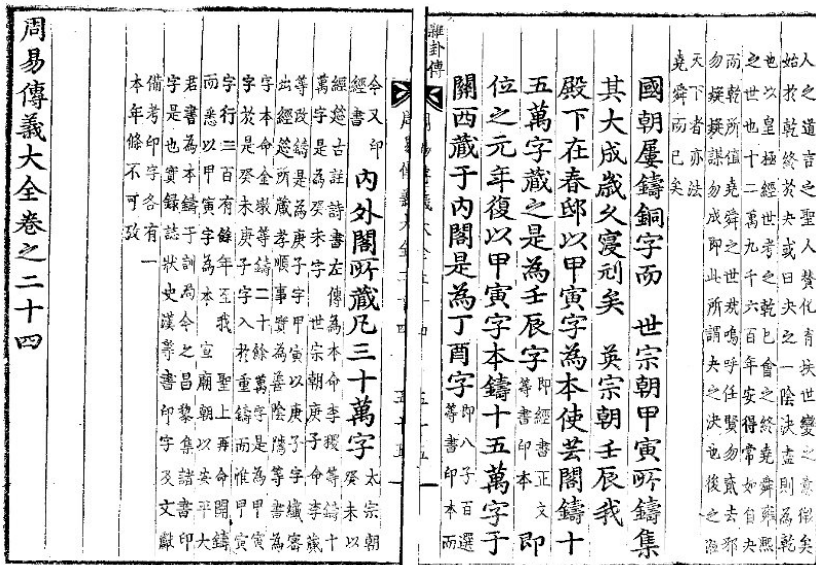 人之道言之聖人贊化育扶世變之意微矣
始於乾終於夬或曰夬之一陰決盡則為乾
也以皇極經世考之乾巳會之終堯舜雍熙
之世也十二萬九千六百年安得常如自夬
而乾所值堯舜之世哉嗚呼任賢勿貳去邪
勿疑疑謀勿成即此所謂夬之決也後之治
天下者亦法
堯舜而已矣
國朝屢鑄銅字而 世宗朝甲寅所鑄集
其大成歲久寖刓矣 英宗朝壬辰我
殿下在春邸以甲寅字為本使芸閣鑄十
五萬字藏之是為壬辰字 即經書正文 等書印本 即
位之元年復以甲寅字本鑄十五萬字于
關西藏于內閣是為丁酉字 即八子百選 等書印本而
雜卦傳
今又印 經書 內外閣所藏凡三十萬字 太宗朝 癸未以
經筵古註詩書左傳為本命李稷等鑄十
萬字是為癸未字 世宗朝庚子命李蕆
等改鑄是為庚子字甲寅以庚子字纖密
出經筵所藏孝順事實為善陰騭等書為
字本命金墩等鑄二十餘萬字是為甲寅
字於是癸未庚子字入於重鑄而惟甲寅
字行三百有餘年至我 聖上再命開鑄
而悉以甲寅字為本 宣廟朝以安平大
君書為本鑄于訓局今之昌黎集諸書印
字是也實錄誌狀史漢等書印字及文獻
備考印字各有一
本年條不可攷
周易傳義大全卷之二十四